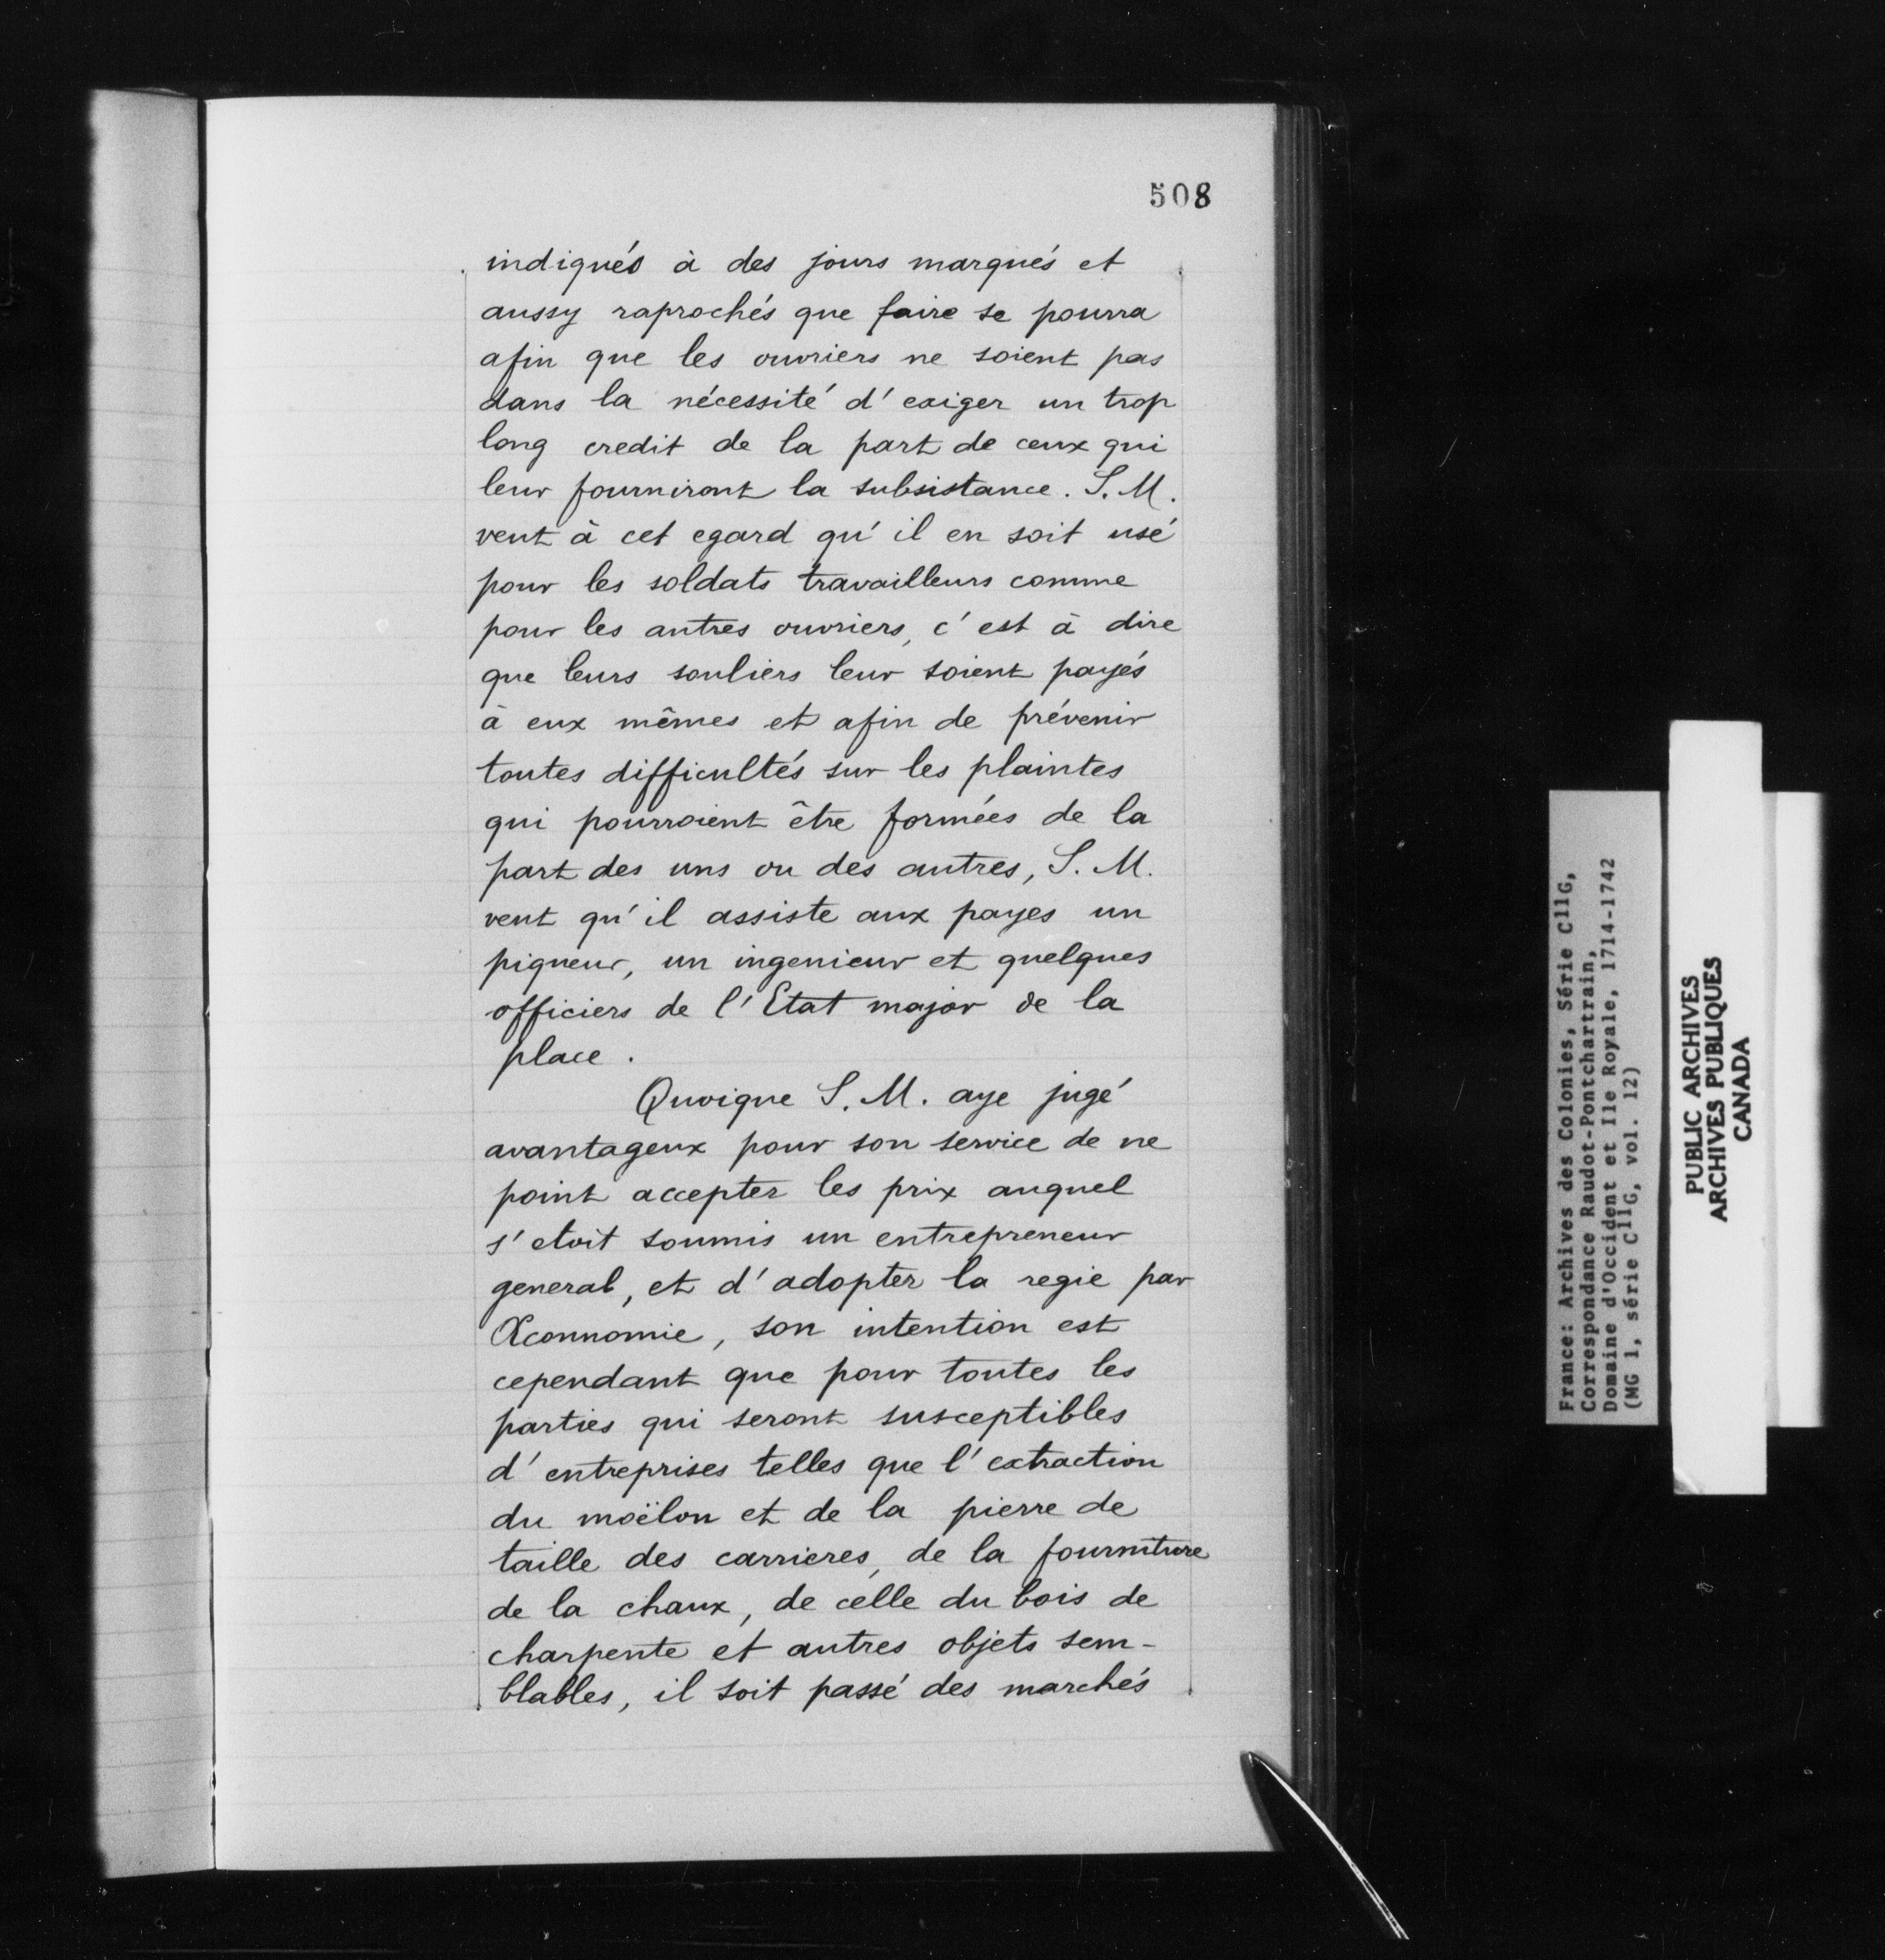 508
indiqués à des jours marqués et
aussy raprochés que faire se pourra
afin que les ouvriers ne soient pas
dans la nécessité d'exiger un trop
long credit de la part de ceux qui
leur fourniront la subsistance. S. M.
veut à cet egard qu'il en soit usé
pour les soldats travailleurs comme
pour les autres ouvriers, c'est à dire
que leurs souliers leur soient payés
à eux mêmes et afin de prévenir
toutes difficultés sur les plaintes
qui pourroient être formées de la
part des uns ou des autres, S. M.
veut qu'il assiste aux payes un
piqueur, un ingenieur et quelques
officiers de l'Etat major de la
place.
Quoique S. M. aye jugé
avantageux pour son service de ne
point accepter les prix auquel
s'etoit soumis un entrepreneur
general, et d'adopter la regie par
Œconnomie, son intention est
cependant que pour toutes les
parties qui seront susceptibles
d'entreprises telles que l'extraction
du moëlon et de la pierre de
taille des carrieres, de la fourniture
de la chaux, de celle du bois de
charpente et autres objets sem-
blables, il soit passé des marchés
France: Archives des Colonies, Série C11G,
Correspondance Raudot-Pontchartrain,
Domaine d'Occident et Ile Royale, 1714-1742
(MG 1, série C11G, vol. 12)
PUBLIC ARCHIVES
ARCHIVES PUBLIQUES
CANADA